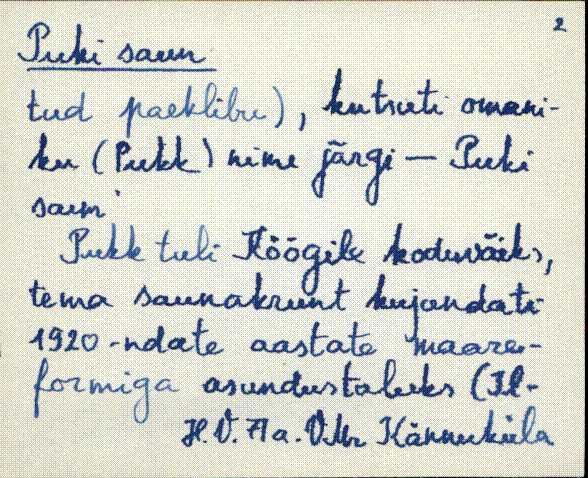 2
Puki saun
tud paeklibu), kutsuti omani-
ku (Pukk) nime järgi — Puki
saun.
Pukk tuli Köögile koduväiks,
tema saunakrunt kujundati
1920-ndate aastate maare-
formiga asundustaluks (Jl-
H. V. Aa. VMr Kännuküla